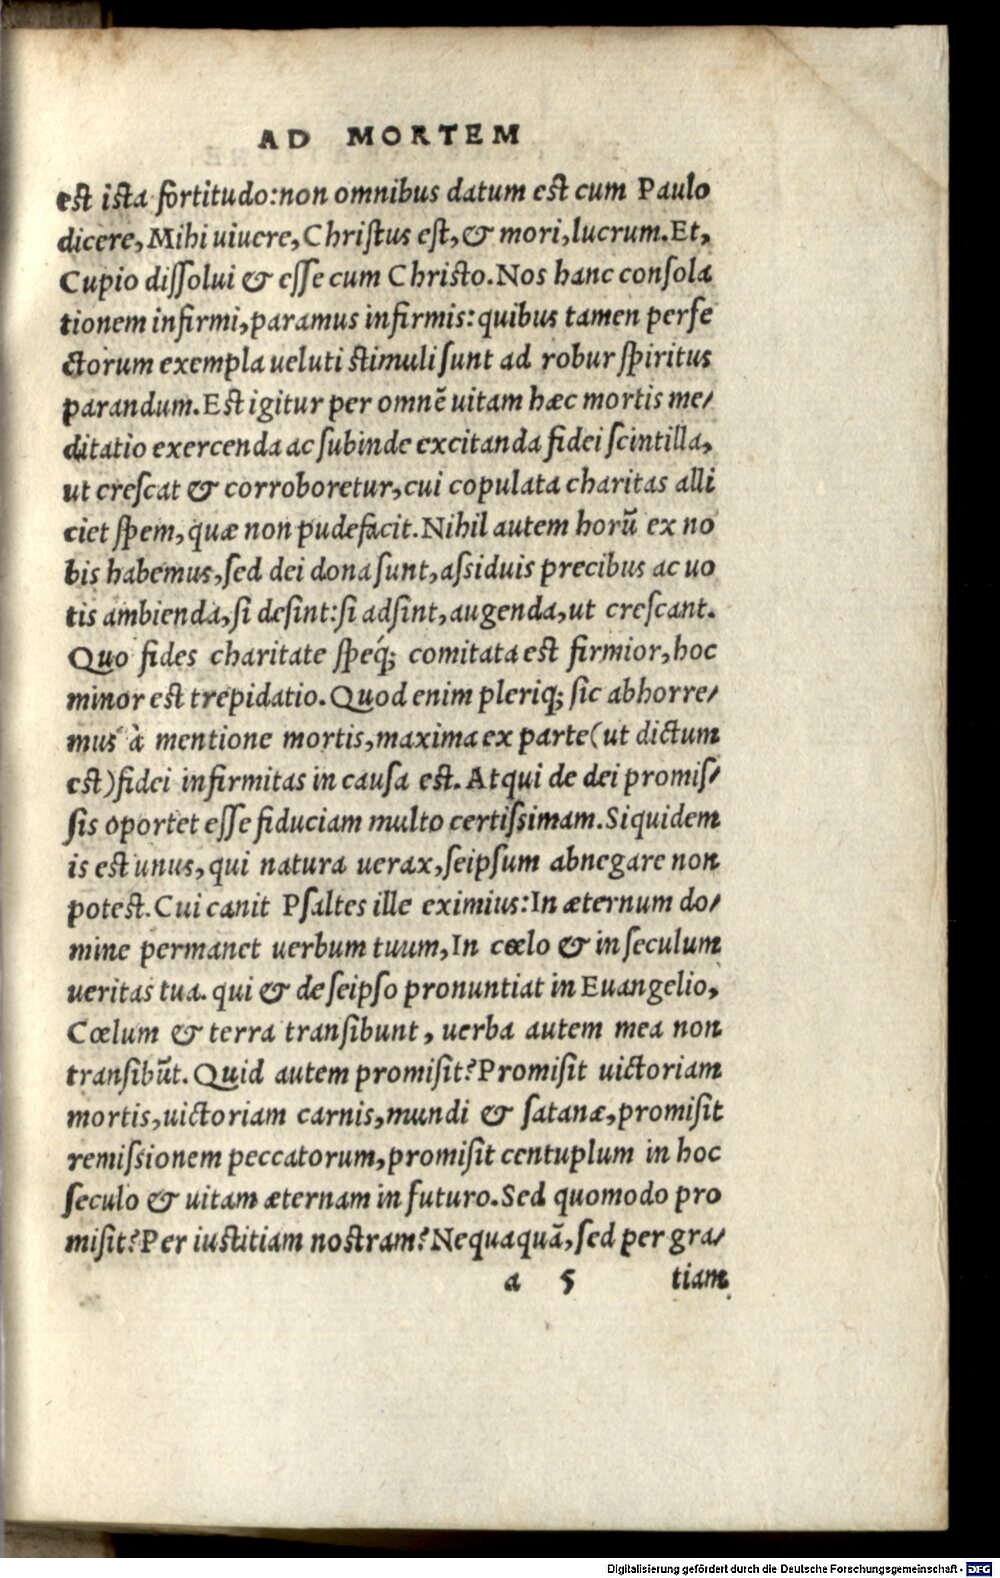 AD MORTEM
est ista fortitudo:non omnibus datum est cum Paulo
dicere,Mihi uiuere,Christus eſt,& mori,lucrum.Et,
Cupio diſſolui & eſſe cum Chriſto.Nos hanc conſola
tionem infirmi,paramus infirmis:quibus tamen perfe
ctorum exempla ueluti stimuli ſunt ad robur ſpiritus
parandum.Est igitur per omnẽ uitam hæc mortis me/
ditatio exercenda ac ſubinde excitanda fidei ſcintilla,
ut creſcat & corroboretur,cui copulata charitas alli
ciet ſpem,quæ non pudefacit.Nihil autem horũ ex no
bis habemus,ſed dei dona ſunt,aſsiduis precibus ac uo
tis ambienda,ſi deſint:ſi adſint,augenda,ut creſcant.
Quo fides charitate ſpeq́; comitata est firmior,hoc
minor est trepidatio.Quod enim pleriq; ſic abhorre/
mus à mentione mortis,maxima ex parte(ut dictum
est)fidei infirmitas in cauſa est.Atqui de dei promiſ/
ſis oportet eſſe fiduciam multo certiſsimam.Siquidem
is est unus,qui natura uerax,ſeipſum abnegare non
potest.Cui canit Pſaltes ille eximius:In æternum do/
mine permanet uerbum tuum,In cœlo & in ſeculum
ueritas tua. qui & de ſeipſo pronuntiat in Euangelio,
Cœlum & terra tranſibunt, uerba autem mea non
tranſibũt.Quid autem promiſit?Promiſit uictoriam
mortis,uictoriam carnis,mundi & ſatanæ,promiſit
remiſsionem peccatorum,promiſit centuplum in hoc
ſeculo & uitam æternam in futuro.Sed quomodo pro
miſit?Per iustitiam nostram?Nequaquã,ſed per gra/
a 5 tiam
Digitalisierung gefördert durch die Deutsche Forschungsgemeinschaft - DFG